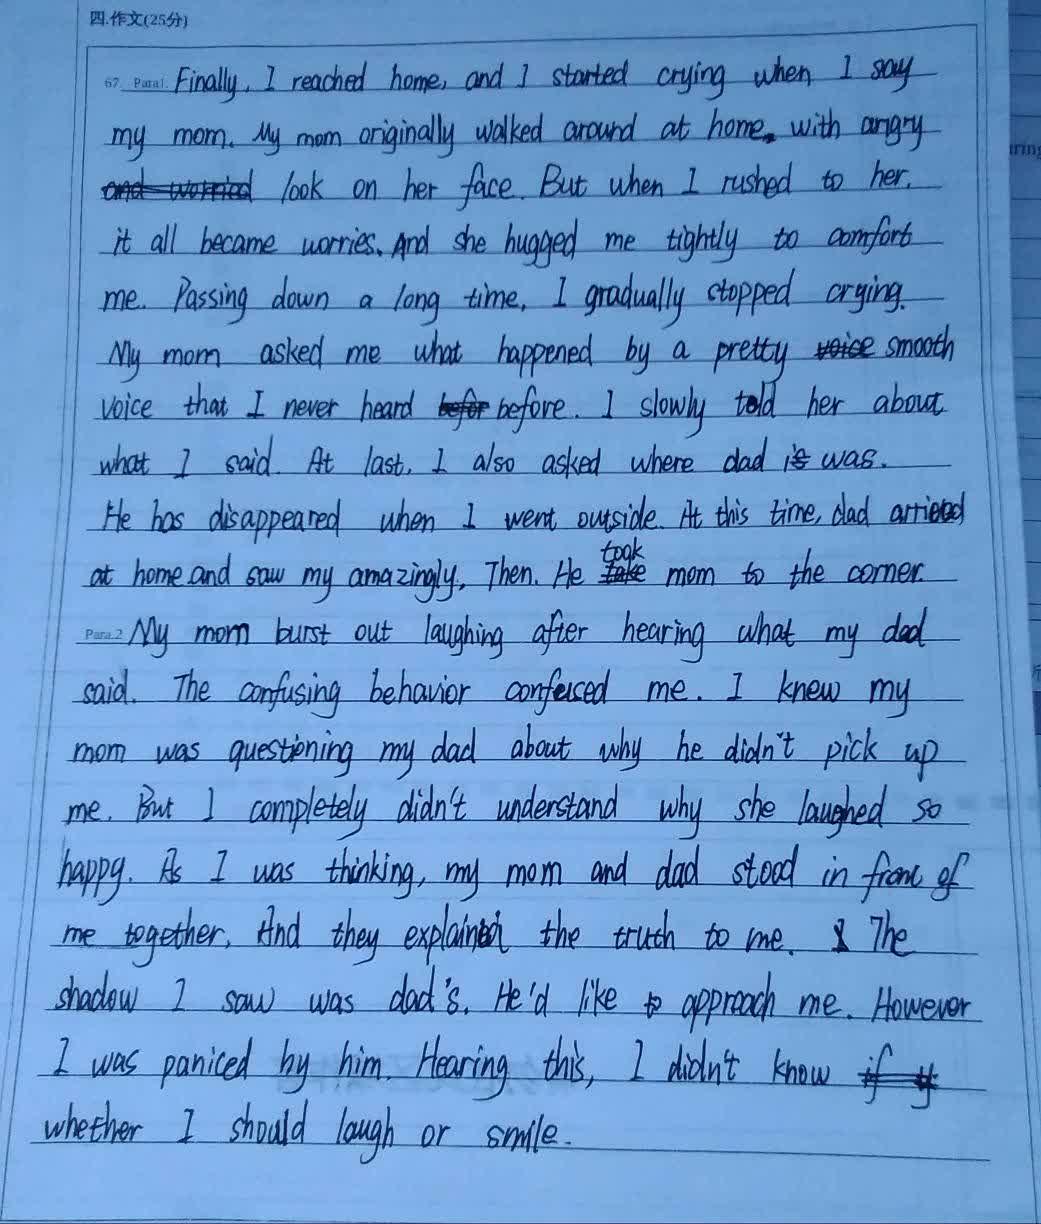 四.作文(25分)
67. Para1. Finally, I reached home, and I started crying when I say
my mom. My mom originally walked around at home. with angry
look on her face. But when I rushed to her,
it all became worries. And she hugged me tightly to comfort
me. Passing down a long time, I gradually stopped crying.
My mom asked me what happened by a pretty smooth
voice that I never heard before. I slowly told her about
what I said. At last, I also asked where dad was.
He has disappeared when I went outside. At this time, dad arrived
at home and saw my amazingly, Then. He took mom to the corner.
Para.2 My mom burst out laughing after hearing what my dad
said. The confusing behavior confused me. I knew my
mom was questioning my dad about why he didn't pick up
me. But I completely didn't understand why she laughed so
happy. As I was thinking, my mom and dad stood in front of
me together, And they explained the truth to me. The
shadow I saw was dad's. He'd like to approach me. However
I was paniced by him. Hearing this, I didn't know
whether I should laugh or smile.